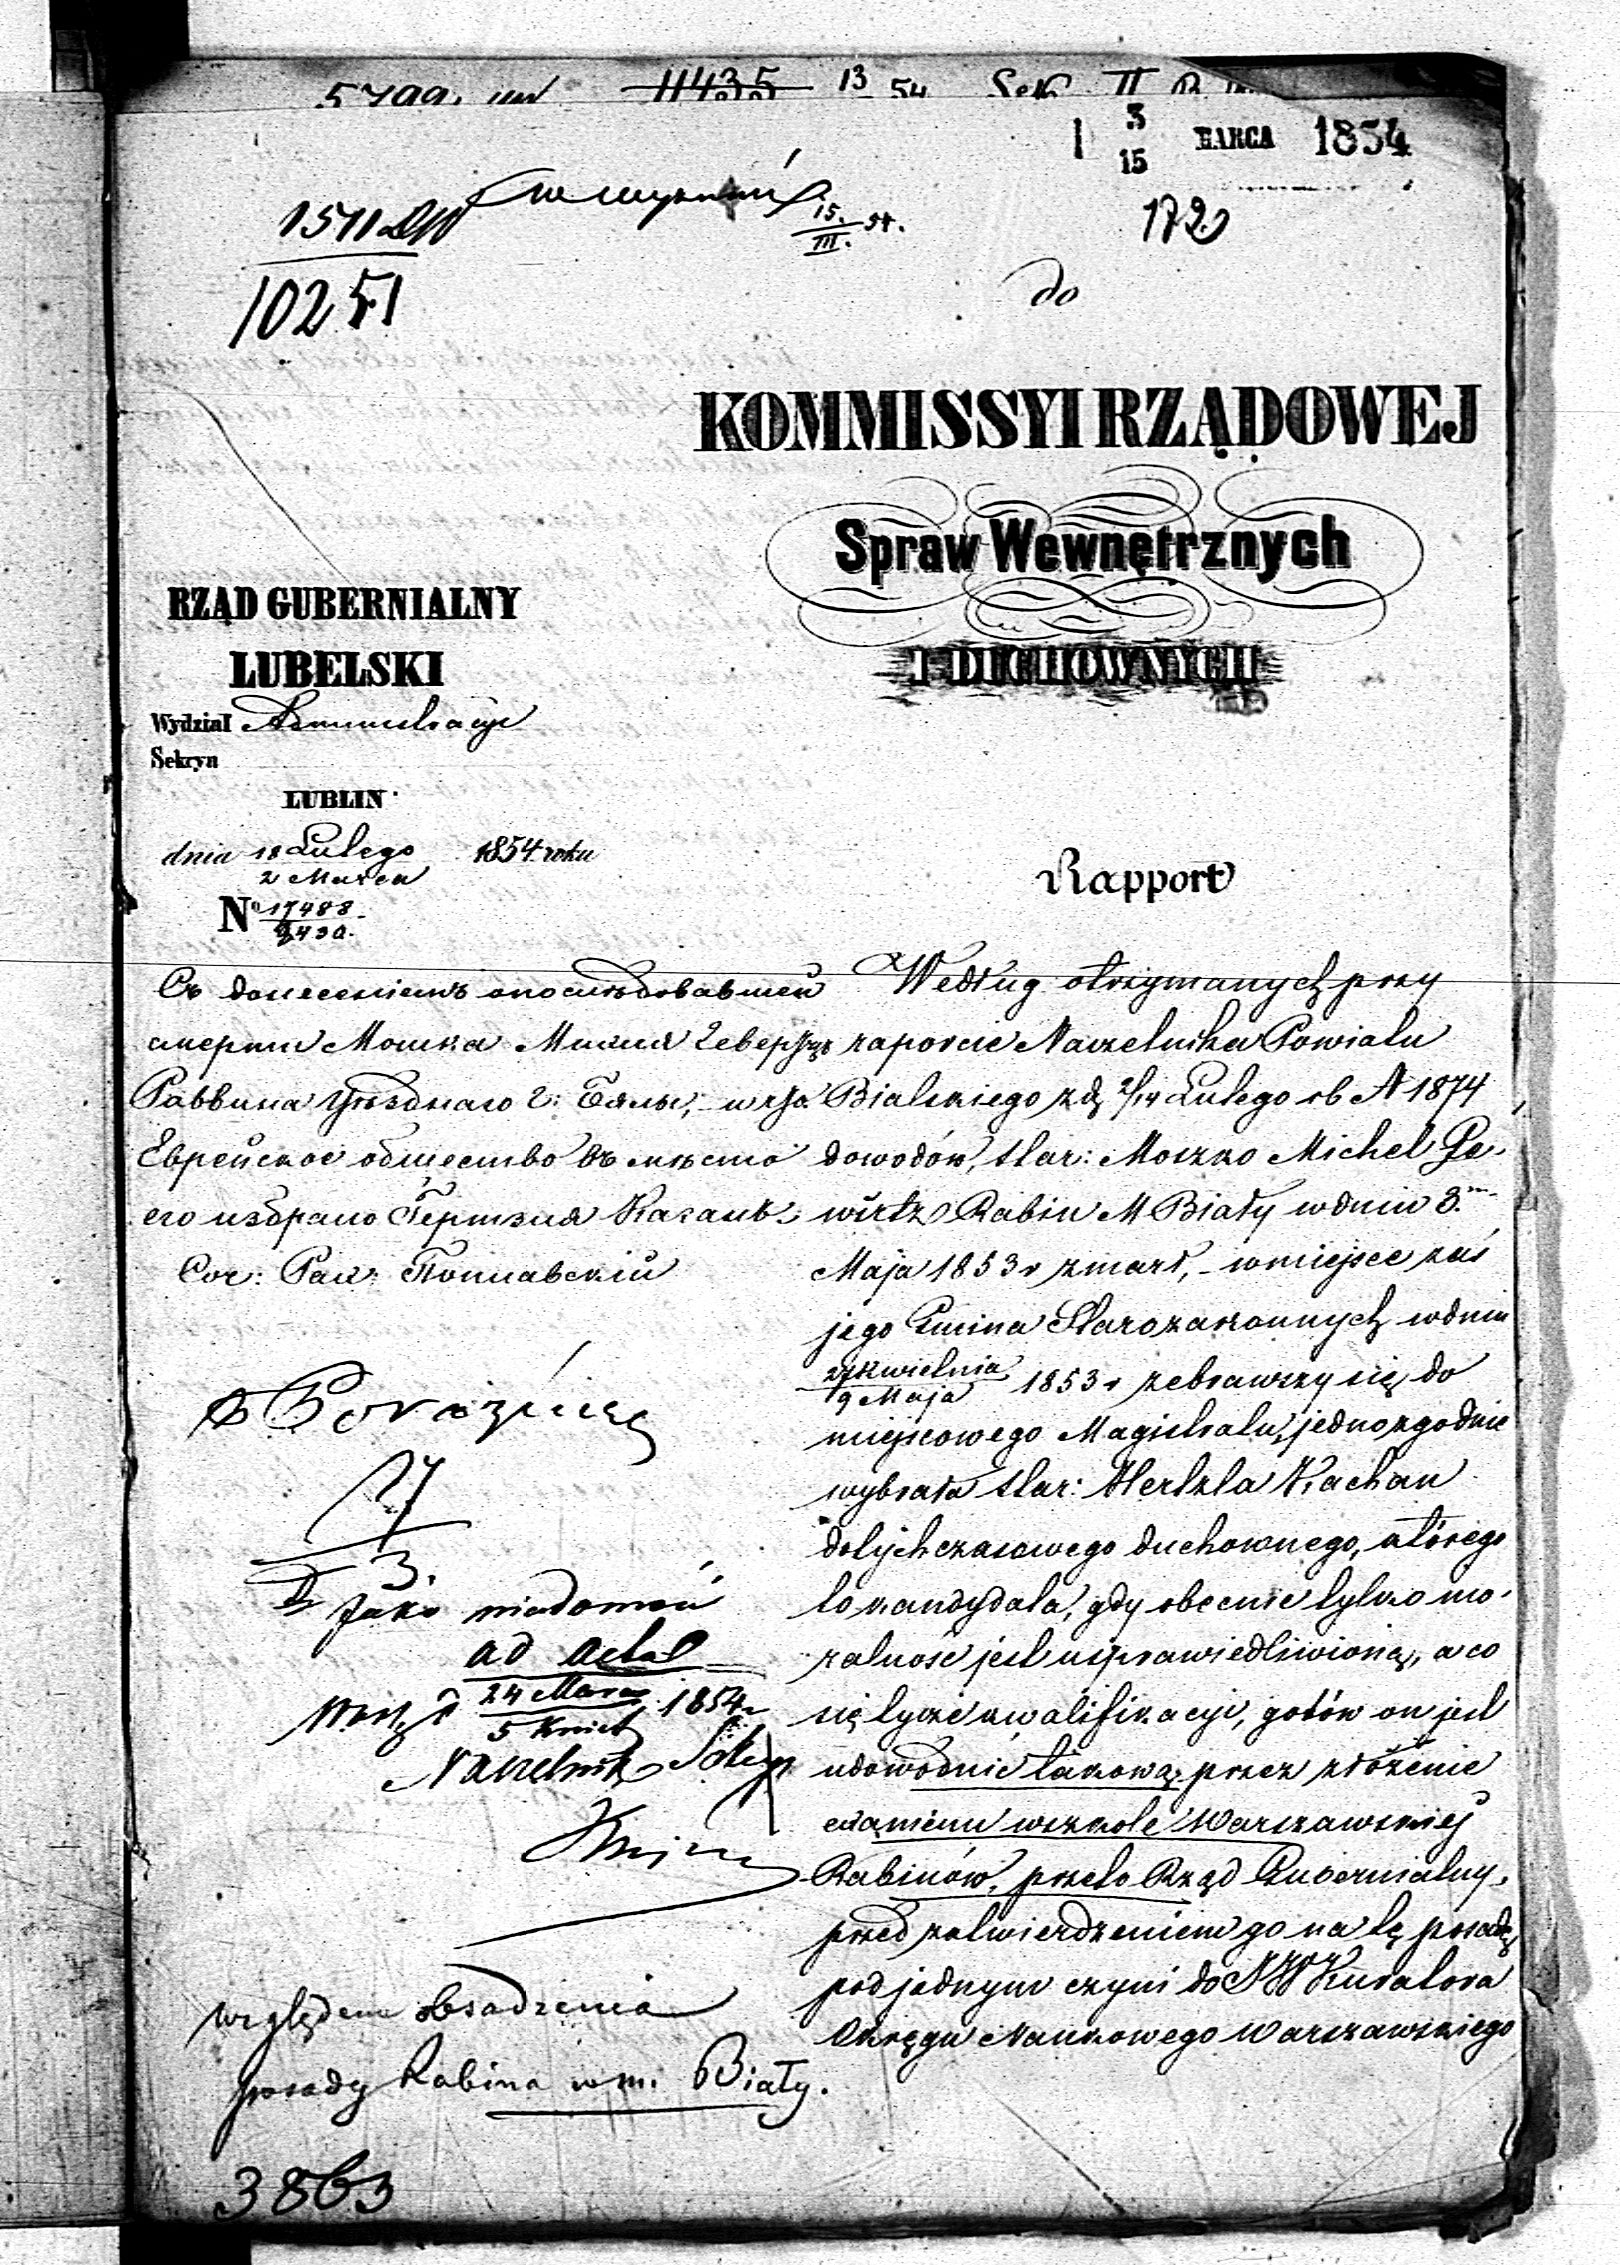 5799. 11435 13 54 Sek II
1 3/15 MARCA 1854
1511 DW
10251
15./III. 54.
172
do
KOMMISSYI RZĄDOWEJ
Spraw Wewnętrznych
I DUCHOWNYCH
RZĄD GUBERNIALNY
LUBELSKI
Wydział Administracyi
Sekcyn
LUBLIN
dnia 18 Lutego 1854 roku
2 Marca
No 17488
Rapport
Съ донесеніемъ о послѣдовавшей
смерти Мошка Михля Геверца
Раввина уѣзднаго г: Бялы, и что
Еврейское общество въ мѣсто
его избрало Герцля Каганъ.
Сог: Рац: Поплавскій
Według otrzymanych przy
raporcie Naczelnika Powiatu
Bialskiego z d. 2/14 Lutego rb N 1874
dowodów, star: Moszko Michel Ge-
wirtz Rabin M Biały w dniu 8.m
Maja 1853 r zmarł, - w miejsce zaś
jego Gmina Starozakonnych w dniu
27 Kwietnia
9 Maja 1853 r zebrawszy się do
miejscowego Magistratu, jednozgodnie
wybrała star: Hertzla Kachan
dotychczasowego duchownego, którego
to kandydata, gdy obecnie tylko mo-
ralność jest usprawiedliwioną, a co
się tycze kwalifikacyi, gotów on jest
udowodnić takową przez złożenie
examinu w szkole Warszawskiej
Rabinów, przeto Rząd Gubernialny,
przed zatwierdzeniem go na tę posadę
pod jednym czyni do JW Kuratora
Okręgu Naukowego Warszawskiego
3.
Jako wiadomość
ad acta
24 Marca
5 Kwiet 1854 r
Naczelnik Sekcyi
względem obsadzenia
posady Rabina w m. Biały.
3863